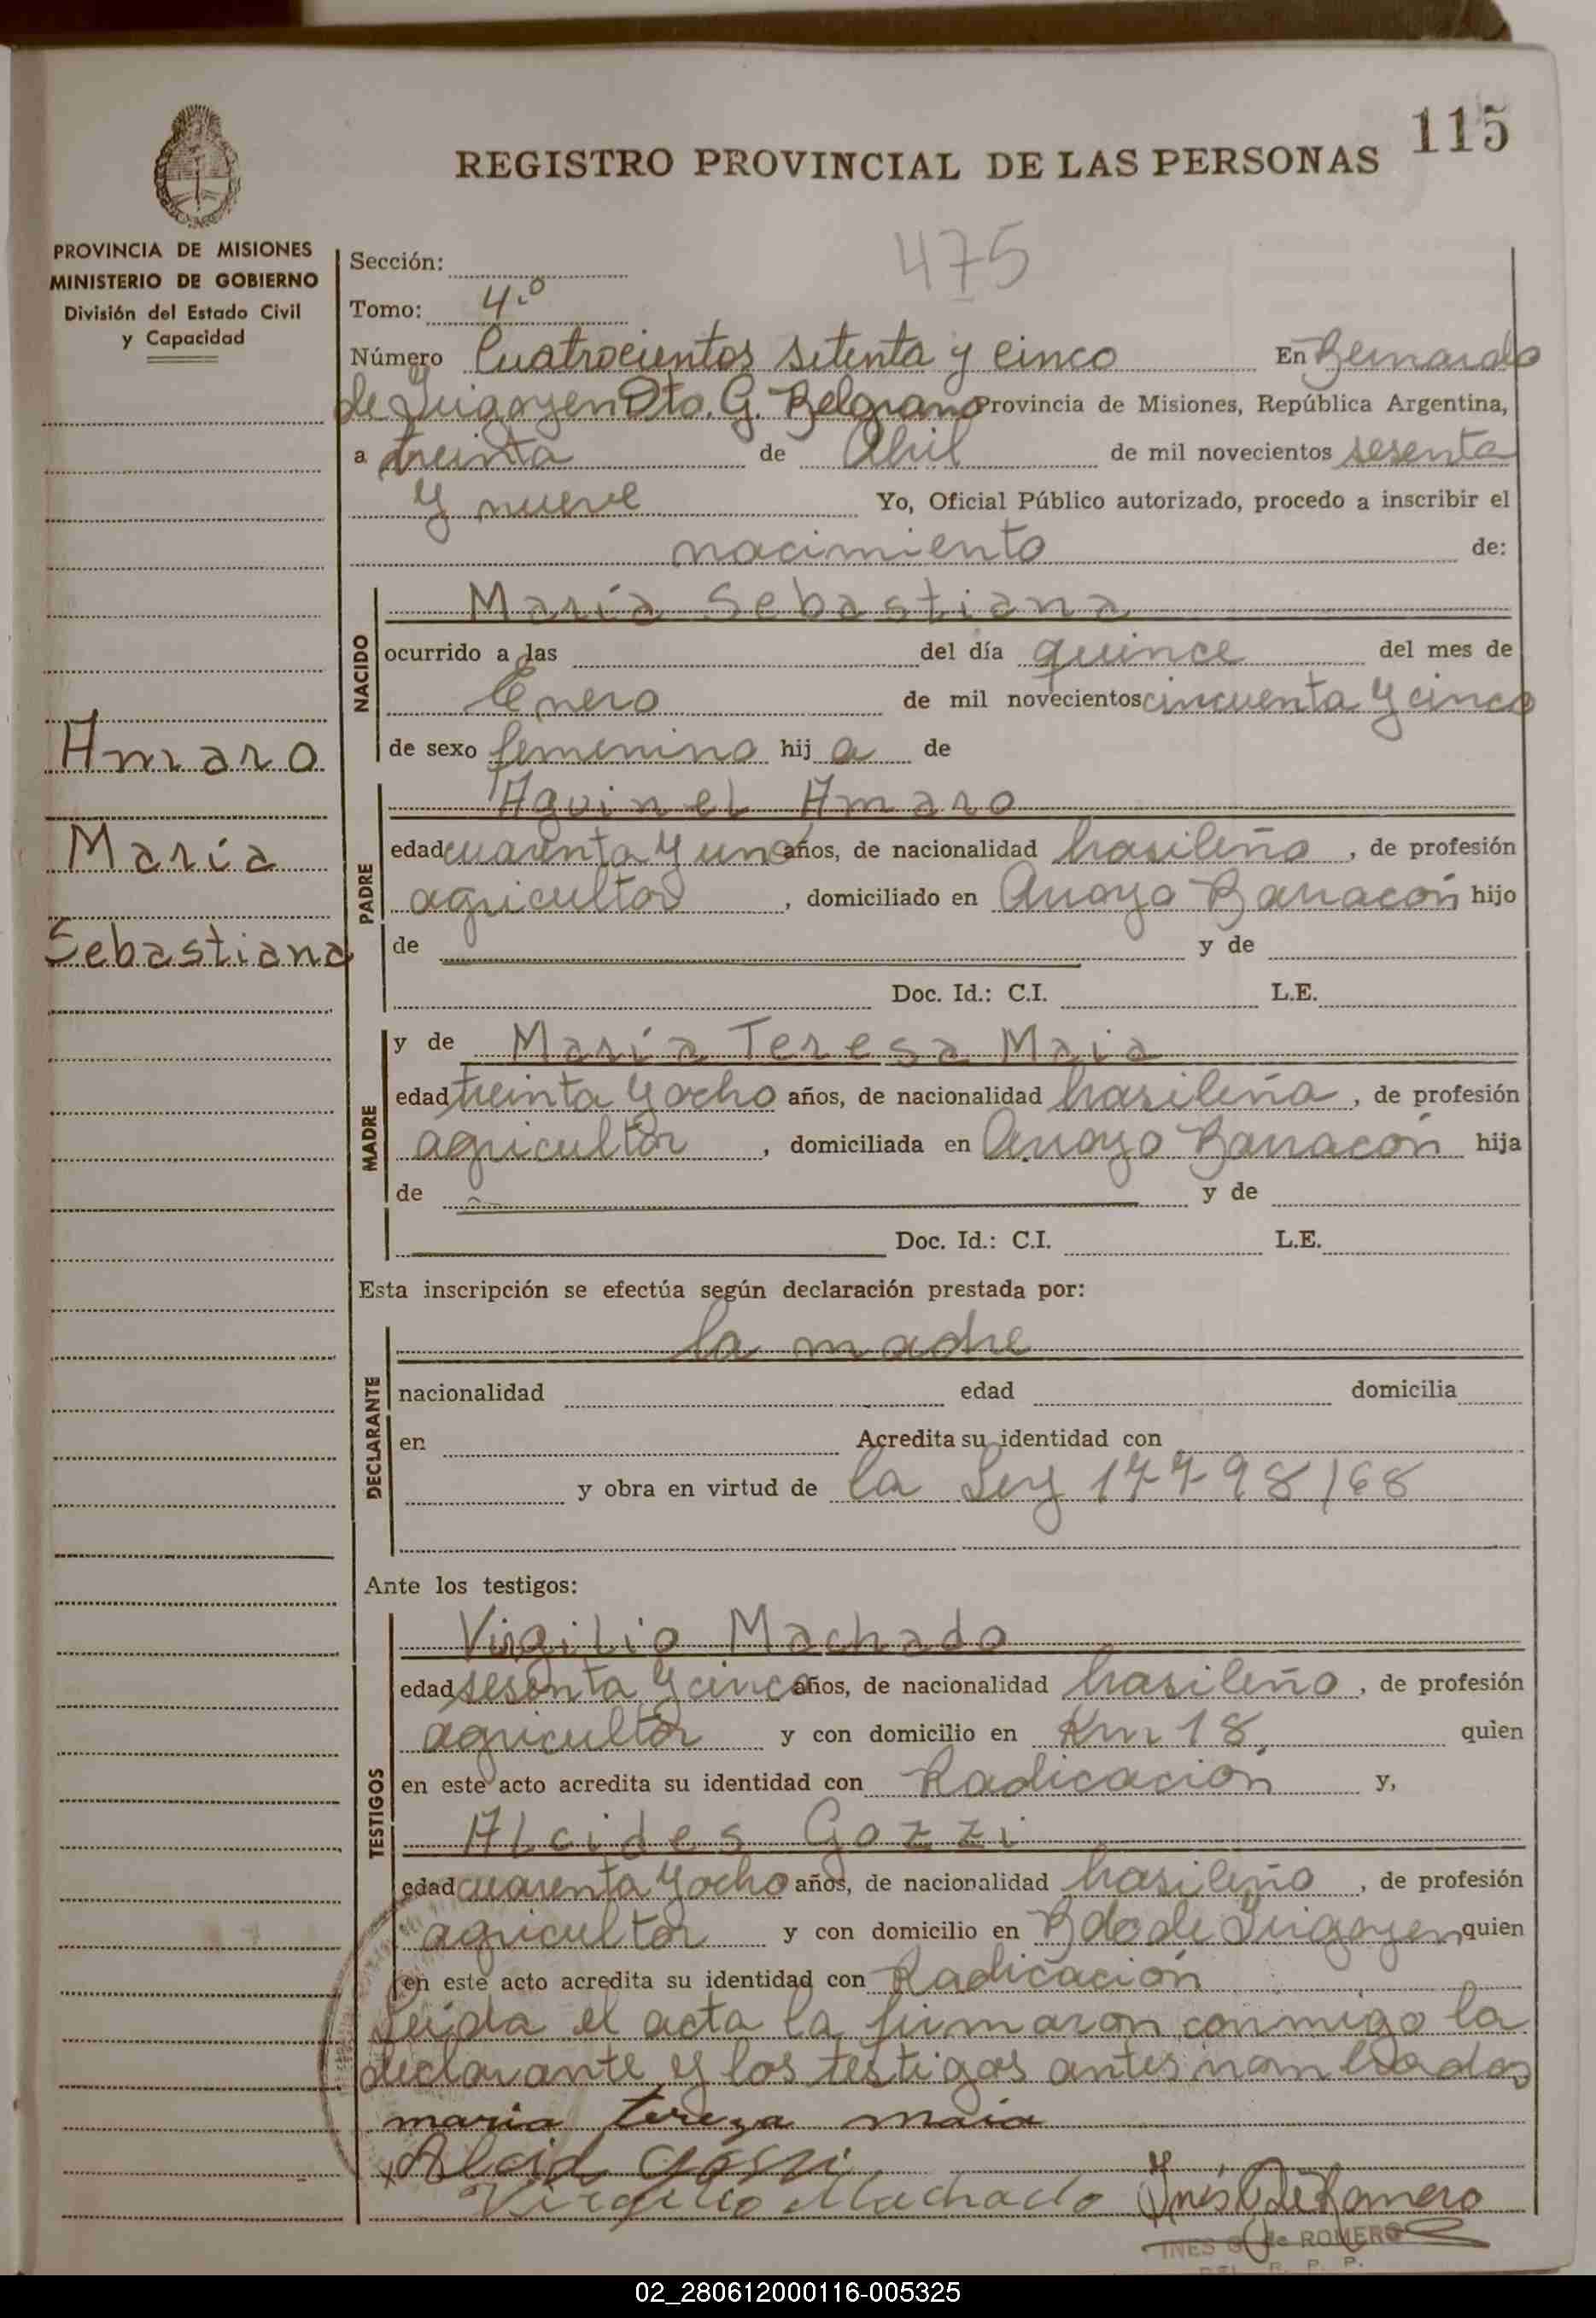 115
REGISTRO PROVINCIAL DE LAS PERSONAS
PROVINCIA DE MISIONES
MINISTERIO DE GOBIERNO
División del Estado Civil
y Capacidad
475
Sección:
Tomo: 4.º
Número Cuatrocientos setenta y cinco En Bernardo
de Irigoyen Dto. G. Belgrano Provincia de Misiones, República Argentina,
a treinta de Abril de mil novecientos sesenta
y nueve Yo, Oficial Público autorizado, procedo a inscribir el
nacimiento de:
NACIDO
María Sebastiana
ocurrido a las del día quince del mes de
Enero de mil novecientos cincuenta y cinco
de sexo femenino hij a de
Amaro
María
Sebastiana
PADRE
Aguinel Amaro
edad cuarenta y uno años, de nacionalidad brasileño, de profesión
agricultor, domiciliado en Arroyo Barracón hijo
de y de
Doc. Id.: C.I. L.E.
MADRE
y de María Teresa Maia
edad treinta y ocho años, de nacionalidad brasileña, de profesión
agricultor, domiciliada en Arroyo Barracón hija
de y de
Doc. Id.: C.I. L.E.
Esta inscripción se efectúa según declaración prestada por:
DECLARANTE
la madre
nacionalidad edad domicilia
en Acredita su identidad con
y obra en virtud de la Ley 17798/68
Ante los testigos:
TESTIGOS
Virgilio Machado
edad sesenta y cinco años, de nacionalidad brasileño, de profesión
agricultor y con domicilio en Km 18, quien
en este acto acredita su identidad con Radicación y,
Alcides Gozzi
edad cuarenta y ocho años, de nacionalidad brasileño, de profesión
agricultor y con domicilio en Bdo de Irigoyen quien
en este acto acredita su identidad con Radicación
Leída el acta la firmaron conmigo la
declarante y los testigos antes nombrados
maria tereza maia
Alcid
Virgilio Machado Inés de Romero
INES G. de ROMERO
R. P. P.
02_280612000116-005325